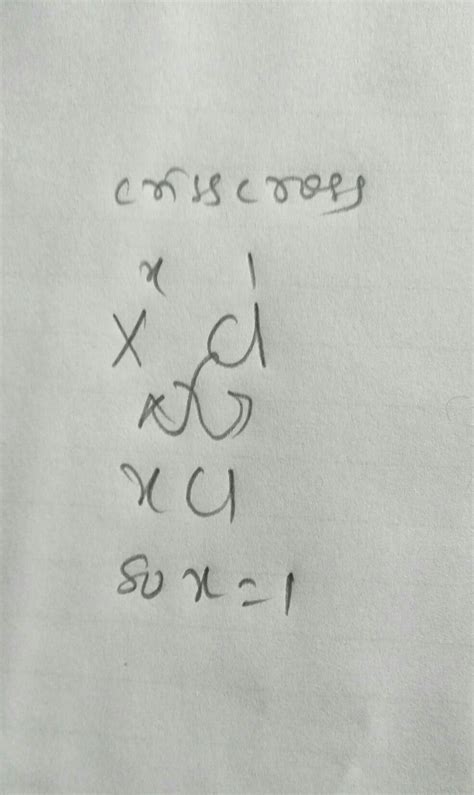 crisscross
x 1
X Cl
x Cl
so x = 1